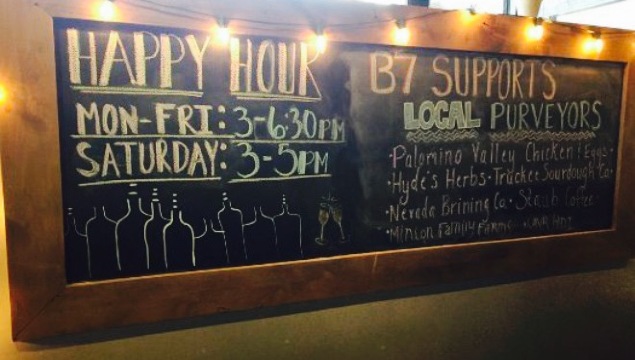 HAPPY HOUR
MON-FRI: 3-6:30PM
SATURDAY: 3-5PM
B7 SUPPORTS
LOCAL PURVEYORS
·Palomino Valley Chicken & Eggs·
·Hyde's Herbs·Truckee Sourdough Co·
·Nevada Brining Co· Staub Coffee·
·Minton Family Farms